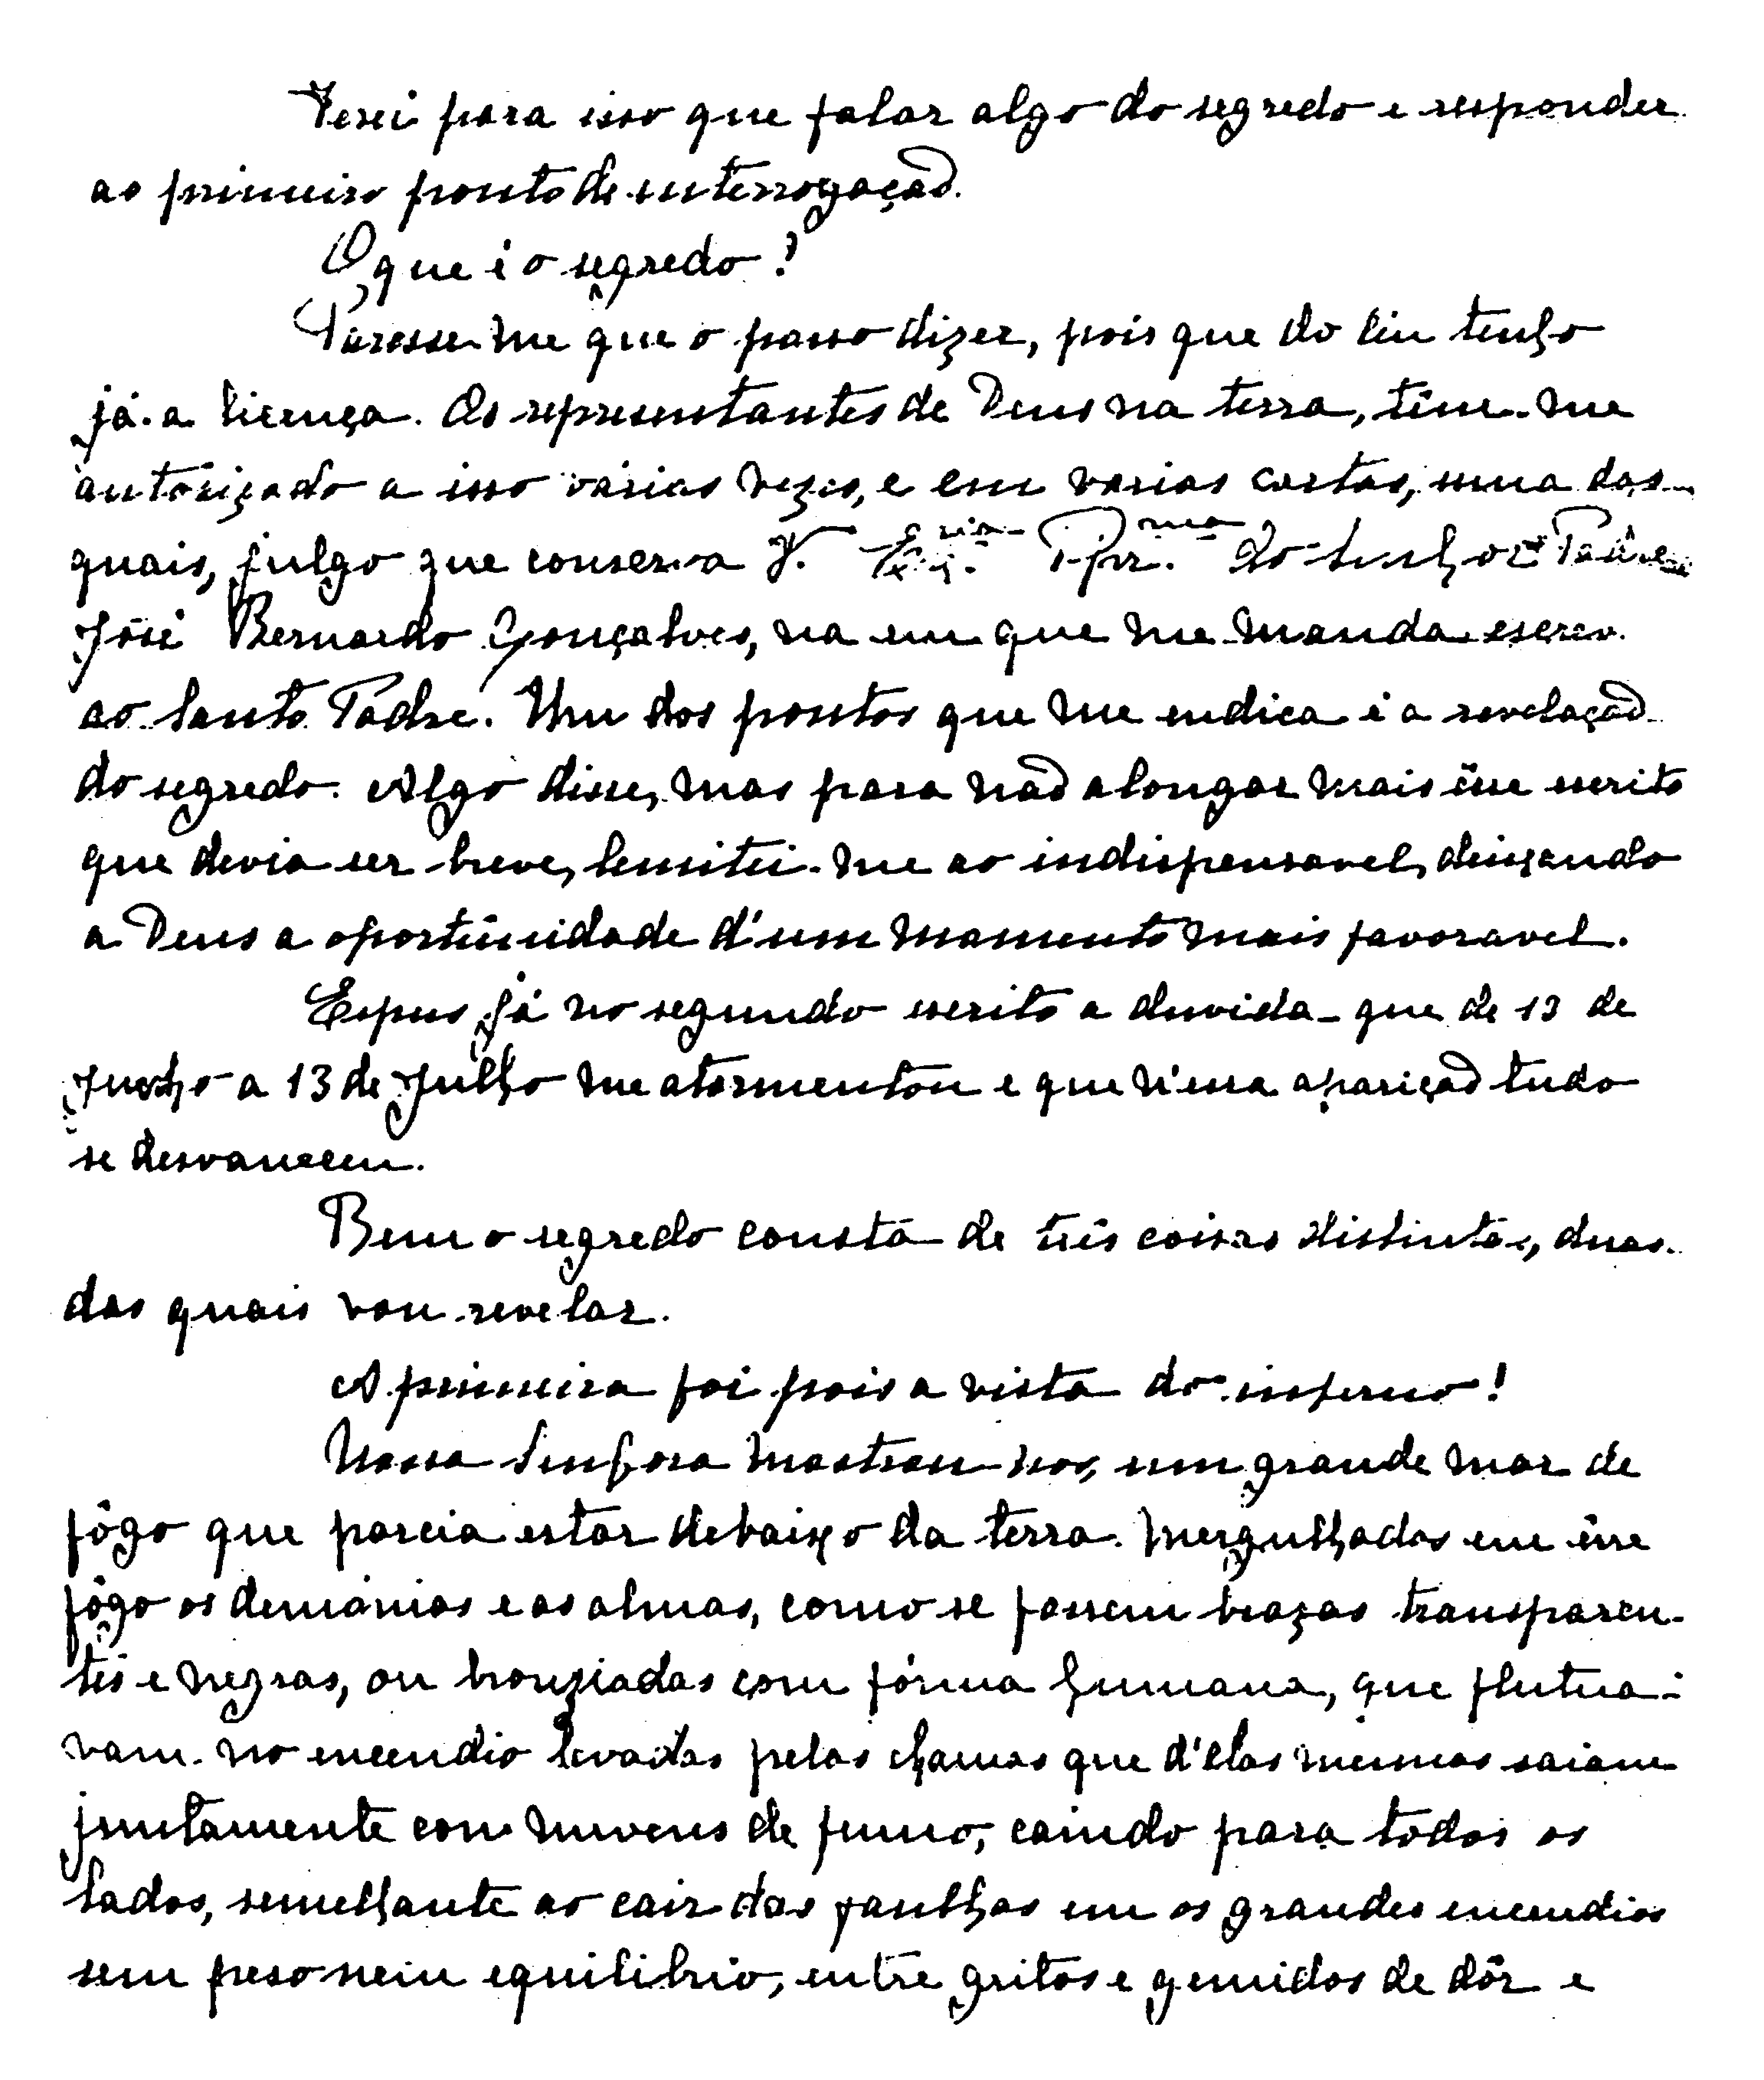 Terei para isso que falar algo do segredo e responder
ao primeiro ponto de interrogação.
O que é o segredo?
Paresse-me que o posso dizer, pois que do Céu tenho
já a licença. Os representantes de Deus na terra, têm-me
autorizado a isso várias vezes, e em varias cartas, uma das
quais, julgo que conserva V. Ex.cia Rev.ma do Senhor Padre
José Bernardo Gonçalves, na em que me manda escrever
ao Santo Padre. Um dos pontos que me indica é a revelação
do segredo. Algo disse, mas para não alongar mais êsse escrito
que devia ser breve, lemitei-me ao indispensavel, deixando
a Deus a oportunidade d'um momento mais favoravel.
Expus já no segundo escrito a duvida que de 13 de
Junho a 13 de Julho me atormentou e que n'essa aparição tudo
se desvaneceu.
Bem o segredo consta de três coisas distintas, duas
das quais vou revelar.
A primeira foi pois a vista do inferno!
Nossa Senhora mostrou-nos um grande mar de
fôgo que parcia estar debaixo da terra. Mergulhados em êsse
fôgo os demónios e as almas, como se fossem brazas transparen-
tes e negras, ou bronziadas com fórma humana, que flutua-
vam no encendio levadas pelas chamas que d'elas mesmas saiam
juntamente com nuvens de fumo, caindo para todos os
lados, semelhante ao cair das faulhas em os grandes encendios
sem peso nem equilibrio, entre gritos e gemidos de dôr e